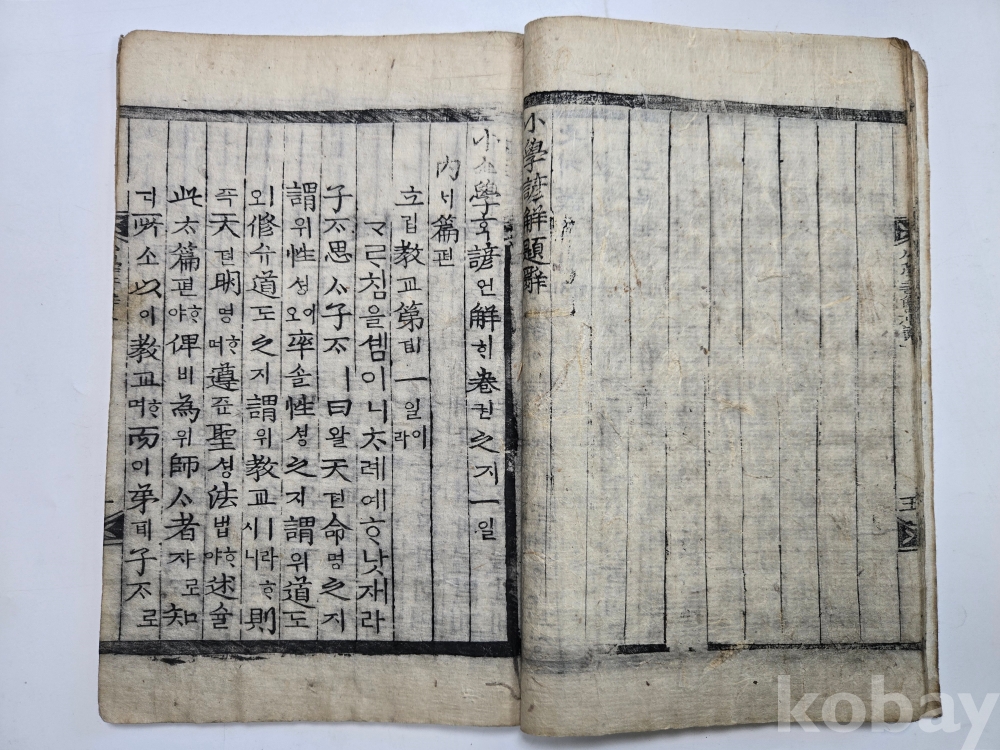 小學諺解題辭
五
小쇼學ᄒᆞᆨ諺언解ᄒᆡ卷권之지一일
內ᄂᆡ篇편
立립敎교第뎨一일이라
ᄀᆞᄅᆞ침을셈이니ᄎᆞ례예ᄒᆞ낫재라
子ᄌᆞ思ᄉᆞ子ᄌᆞㅣ曰왈天텬命명之지
謂위性셩이오率솔性셩之지謂위道도
ㅣ오修슈道도之지謂위敎교ㅣ라ᄒᆞ시니則
즉天텬明명ᄒᆞ며遵쥰聖셩法법ᄒᆞ야述슐
此ᄎᆞ篇편ᄒᆞ야俾비爲위師ᄉᆞ者쟈로知
디所소以이敎교ᄒᆞ며而이弟뎨子ᄌᆞ로
kobay